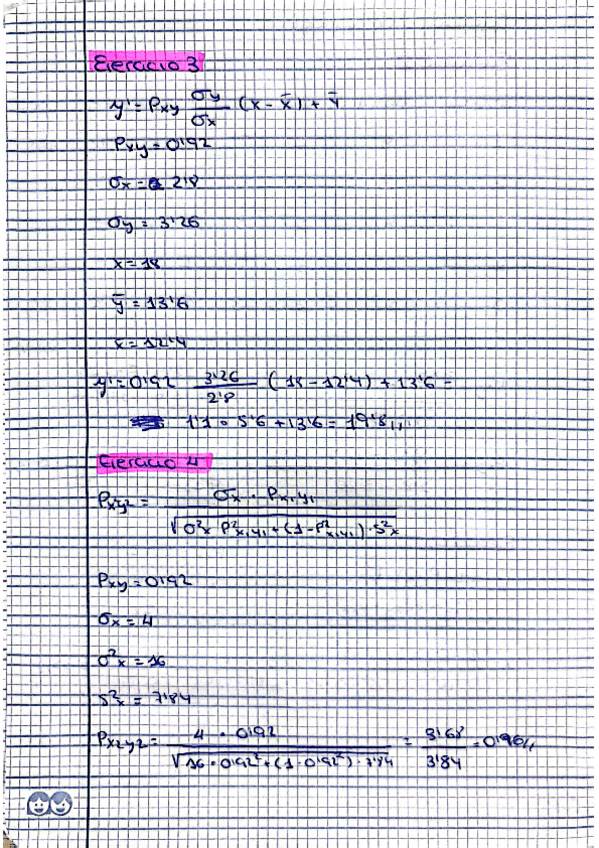 Ejercicio 3
y' = Pxy σy/σx (x - x̄) + ȳ
Pxy = 0'92
σx = 2'8
σy = 3'26
x = 18
ȳ = 13'6
x̄ = 12'4
y' = 0'92 3'26/2'8 (18 - 12'4) + 13'6 =
1'1 · 5'6 + 13'6 = 19'8,,
Ejercicio 4
Px2y2 = σx · Px,y1 / √σ²x P²x,y1 + (1 - P²x,y1) · S²x
Pxy = 0'92
σx = 4
σ²x = 16
S²x = 7'84
Px2y2 = 4 · 0'92 / √16 · 0'92² + (1 · 0'92²) · 7'84 = 3'68 / 3'84 = 0'96,,